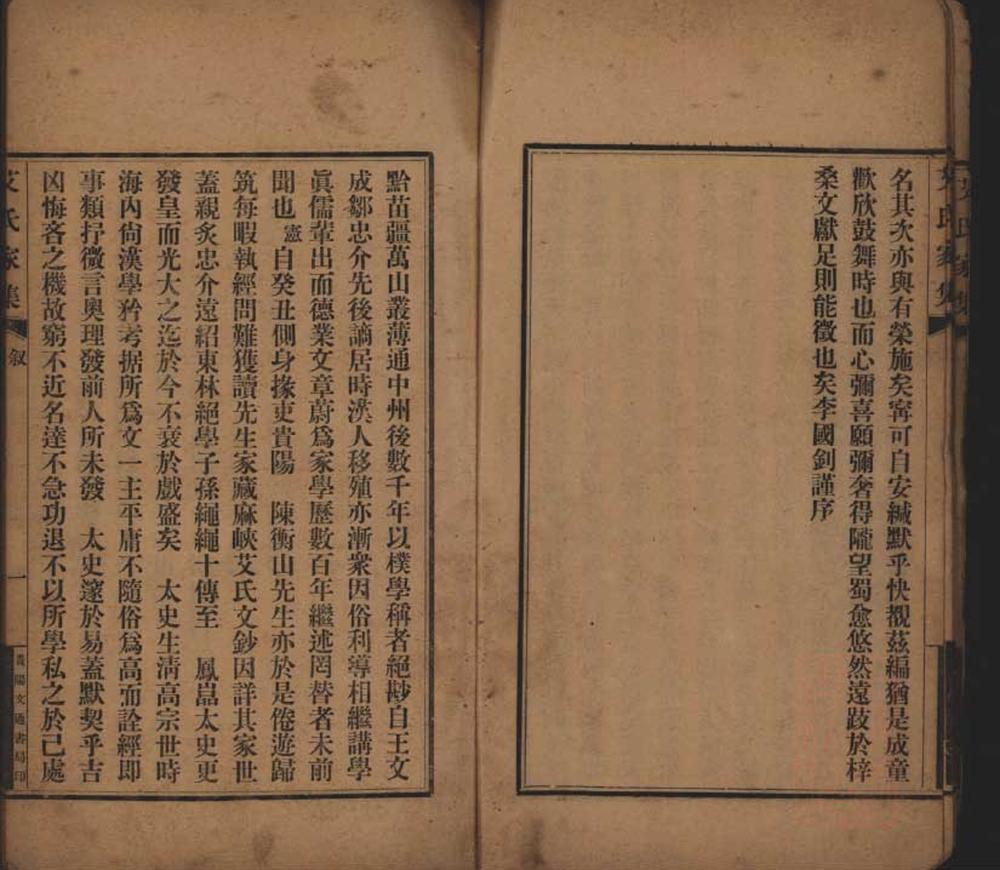 名其次亦與有榮施矣寗可自安緘默乎快覩茲編猶是成童
歡欣鼓舞時也而心彌喜願彌奢得隴望蜀愈悠然遠跂於梓
桑文獻足則能徵也矣李國釗謹序
黔苗疆萬山叢薄通中州後數千年以樸學稱者絕尠自王文
成鄒忠介先後謫居時漢人移殖亦漸衆因俗利導相繼講學
眞儒輩出而德業文章蔚爲家學歷數百年繼述罔替者未前
聞也憲自癸丑側身掾吏貴陽 陳衡山先生亦於是倦遊歸
筑每暇執經問難獲讀先生家藏麻峽艾氏文鈔因詳其家世
蓋親炙忠介遠紹東林絕學子孫繩繩十傳至 鳳嵓太史更
發皇而光大之迄於今不衰於戲盛矣 太史生淸高宗世時
海內尙漢學矜考据所爲文一主平庸不隨俗爲高而詮經即
事類抒微言奧理發前人所未發 太史邃於易蓋默契乎吉
凶悔吝之機故窮不近名達不急功退不以所學私之於己處
艾氏家集 叙 一 貴陽文通書局印